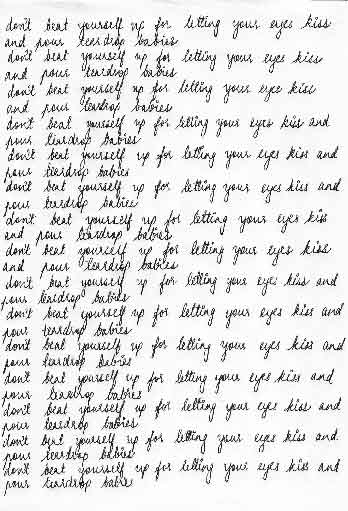 don't beat yourself up for letting your eyes kiss
and pour teardrop babies
don't beat yourself up for letting your eyes kiss
and pour teardrop babies
don't beat yourself up for letting your eyes kiss
and pour teardrop babies
don't beat yourself up for letting your eyes kiss and
pour teardrop babies
don't beat yourself up for letting your eyes kiss and
pour teardrop babies
don't beat yourself up for letting your eyes kiss and
pour teardrop babies
don't beat yourself up for letting your eyes kiss
and pour teardrop babies
don't beat yourself up for letting your eyes kiss
and pour teardrop babies
don't beat yourself up for letting your eyes kiss and
pour teardrop babies
don't beat yourself up for letting your eyes kiss and
pour teardrop babies
don't beat yourself up for letting your eyes kiss and
pour teardrop babies
don't beat yourself up for letting your eyes kiss and
pour teardrop babies
don't beat yourself up for letting your eyes kiss and
pour teardrop babies
don't beat yourself up for letting your eyes kiss and
pour teardrop babies
don't beat yourself up for letting your eyes kiss and
pour teardrop babies